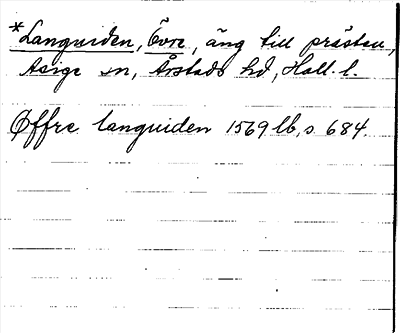 *Languiden, Övre, äng till prästen,
Asige sn, Årstads hd, Hall. l.
Øffre languiden 1569 lb, s 684.